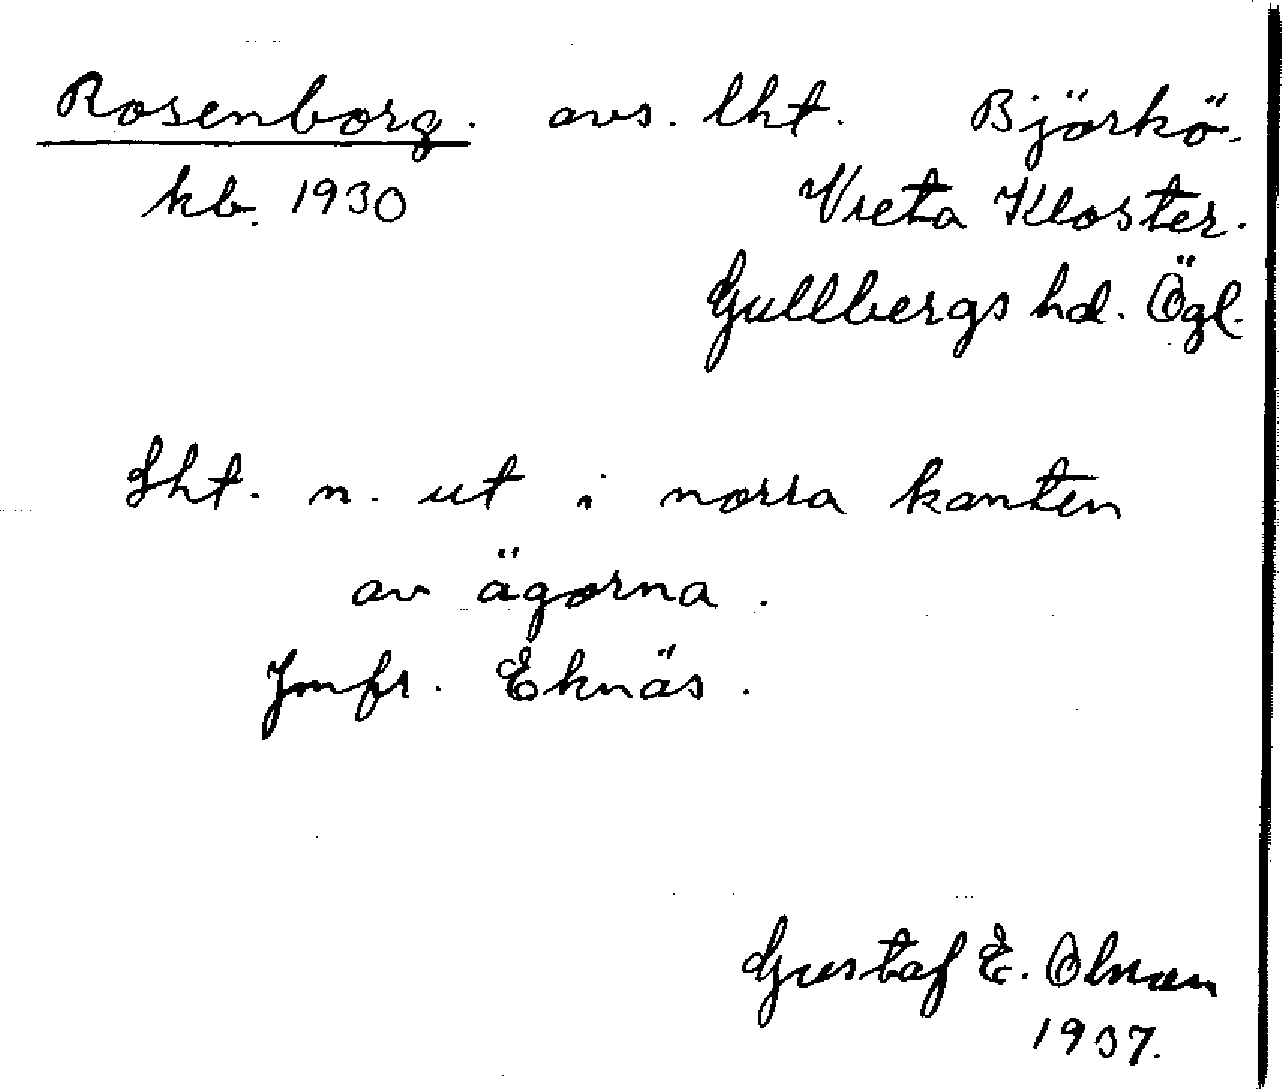 Rosenborg. avs. lht. Björkö.
kb. 1930 Vreta Kloster.
Gullbergs hd. Ögl.
Lht. n. ut i norra kanten
av ägorna.
Jmfr. Eknäs.
Gustaf E. Olman
1937.